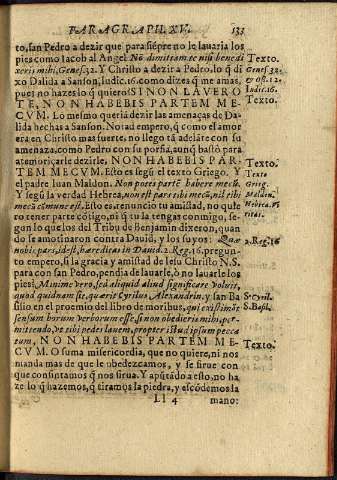 PARAGRAPH. XV. 133
to, san Pedro a dezir que para siẽpre no le lauaria los
pies como Iacob al Angel Nõ dimittam te nisi benedi
xeris mihi, Genes. 32. Y Christo a dezir a Pedro, lo q̃ di
xo Dalida a Sanson, Iudic. 16. como dizes q̃ me amas,
pues no hazes lo q̃ quiero? SI NON LAVERO
TE, NON HABEBIS PARTEM ME-
CVM. Lo mesmo queria dezir las amenaças de Da-
lida hechas a Sanson. Notad empero, q̃ como el amor
era en Christo mas fuerte, no llego tã adelãte con su
amenaza, como Pedro con su porfia, aunq̃ bastò para
atemoriçarle dezirle, NON HABEBIS PAR-
TEM MECVM. Esto es segũ el texto Griego. Y
el padre Iuan Maldon. Non potes partẽ habere mecũ.
Y segũ la verdad Hebrea, non est pars tibi mecũ, nil tibi
mecũ cõmune est. Esto es renuncio tu amistad, no quie
ro tener parte cõtigo, ni q̃ tu la tengas conmigo, se-
gun lo que los del Tribu de Benjamin dixeron, quan-
do se amotinaron contra Dauid, y los suyos: Quæ
nobis pars, id est, hæreditas in Dauid. 2. Reg. 16. pregun-
to empero, si la gracia y amistad de Iesu Christo N. S.
para con san Pedro, pendia de lauarle, ò no lauarle los
pies? Minime vero, sed aliquid aliud significare voluit,
quod quidnam sit, quærit Cyrilus Alexandrin. y san Ba
silio en el proemio del libro de moribus, qui existimãt
sensum horum verborum esse, si non obedieris mihi, per-
mittendo, vt tibi pedes lauem, propter istud ipsum pecca
tum, NON HABEBIS PARTEM ME-
CVM. O suma misericordia, que no quiere, ni nos
manda mas de que le obedezcamos, y se sirue con
que consintamos q̃ nos sirua. Y apurãdo a esto, no ha
ze lo q̃ hazemos, q̃ tiramos la piedra, y escõdemos la
Ll 4 mano:
Texto.
Genes. 32.
Iudic. 16.
Texto.
Texto.
Texto
Grieg.
Maldon.
Hebrea.
2. Reg. 16
S. Cyril.
S. Basil.
Texto.